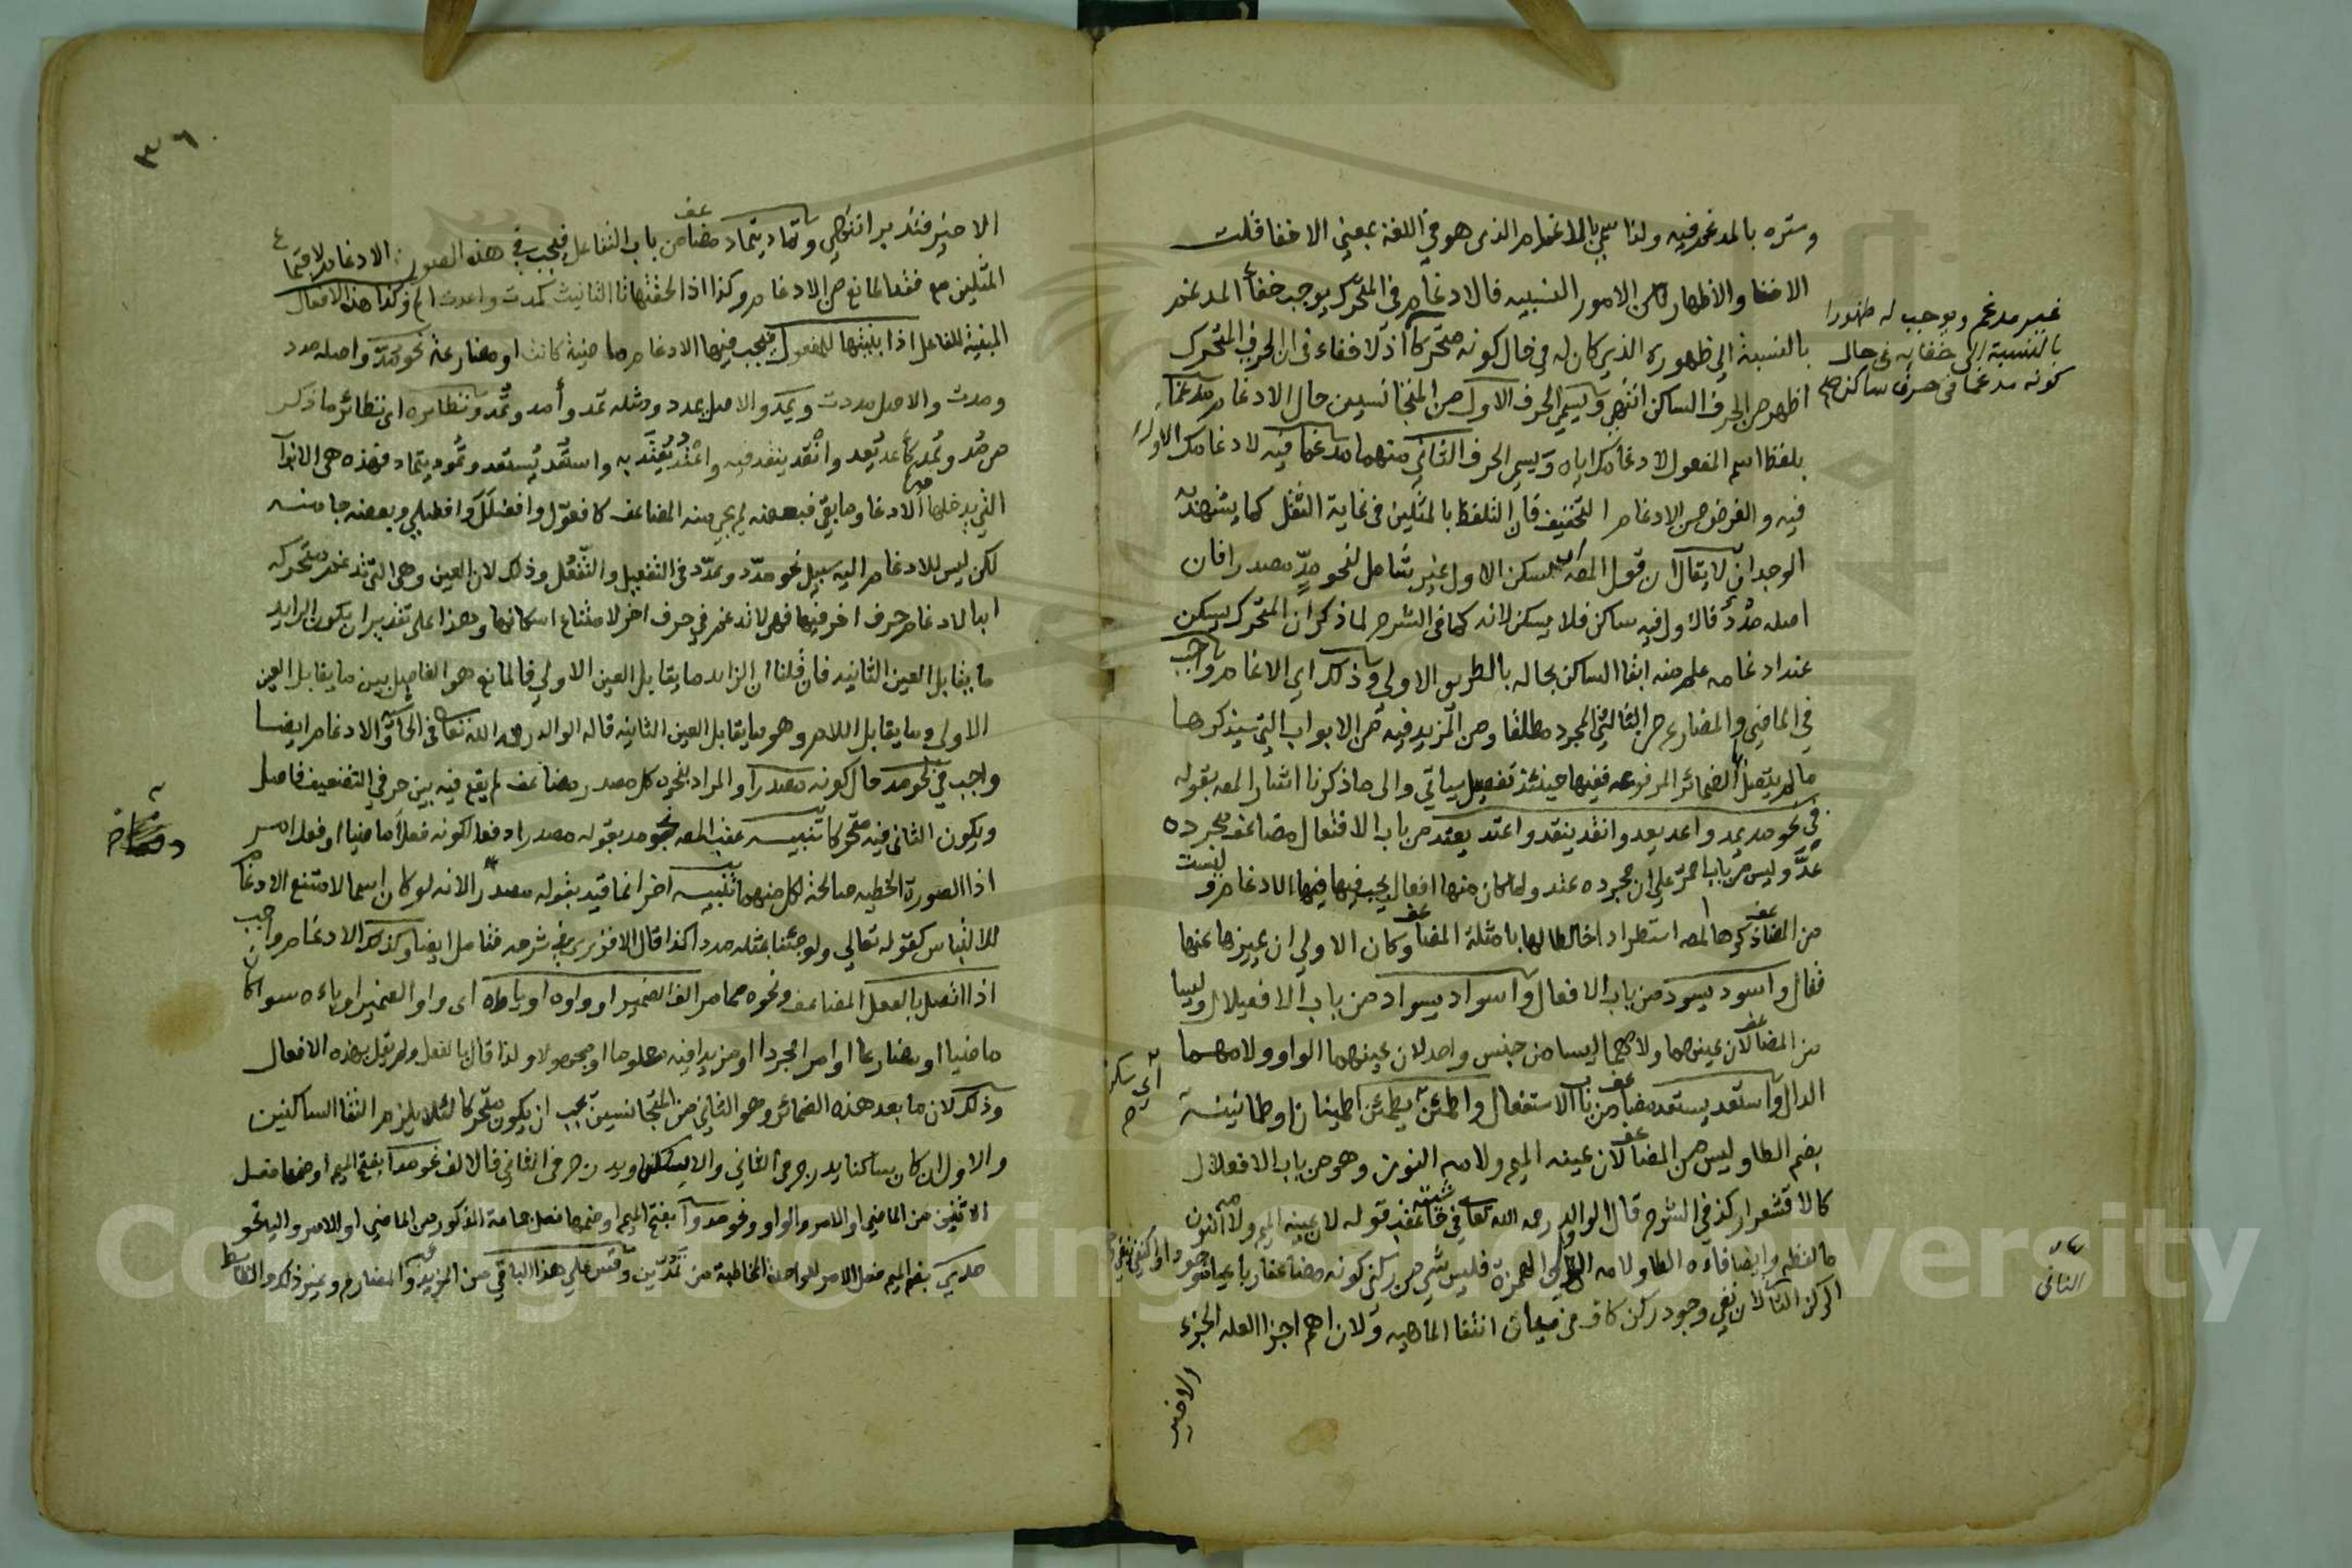 وستره بالمدغم فيه ولذا سمي بالادغام الذى هو في اللغة بمعنى الاخفا قلت
الاخفا والاظهار من الامور النسبيه فالادغام في المتحرك يوجب خفاء المدغم
بالنسبة الى ظهوره الذي كان له في حال كونه متحركا اذ لا خفاء في ان الحرف المتحرك
اظهر من الحرف الساكن انتهى ويسمى الحرف الاول من المتجانسين حال الادغام مدغما
بلفظ اسم المفعول لادغامك اياه ويسمى الحرف الثاني منهما مدغما فيه لادغامك الاول
فيه والغرض من الادغام التخفيف فان التلفظ بالمثلين في غاية الثقل كما يشهد به
الوجدان لا يقال ان قول المصـ يسكن الاول غير شامل لنحو مدّ مصدرا فان
اصله مدْدٌ فالاول فيه ساكن فلا يسكن لانه كما في الشرح لما ذكر ان المتحرك يسكن
عند ادغامه علم منه ابقا الساكن بحاله بالطريق الاولى وذلك اي الادغام واجب
في الماضي والمضارع من الثلاثي المجرد مطلقا ومن المزيد فيه من الابواب التي سيذكرها
مالم يتصل الضمائر المرفوعه ففيها حينئذ تفصيل سيأتي والى ما ذكرنا اشار المصـ بقوله
في نحو مد يمد واعد يعد وانقد ينقد واعتد يعتد من باب الافتعال مضاعف مجرده
عدّ وليس من باب احمرّ على ان مجرده عتد ولما كان منها افعال يجب فيها الادغام وليست
من المضاعف ذكرها المصـ استطرادا خالطا لها بامثلة المضاعف وكان الاولى ان يميزها عنها
فقال واسود يسود من باب الافعلال واسواد يسواد من باب الافعيلال وليسا
من المضاعف لان عينهما ولامهما ليسا من جنس واحد لان عينهما الواو ولامهما
الدال واستعد يستعد مضاعف من باب الاستفعال واطمئن يطمئن اطمينانا وطمانينة
بضم الطا وليس من المضاعف لان عينه الميم ولامه النون وهو من باب الافعلال
كالاقشعرار كذا في الشرح قال الوالد رحمه الله تعالى في حاشيته عقب قوله لان عينه الميم ولامه النون
ما لفظه وايضا فاءه الطا ولامه الاولى الهمزة فليس شي من ركني كونه مضاعفا رباعيا موجودا
الركن الثاني لان نفي وجود ركن كاف في انتفا الماهيه ولان اهم اجزا العله الجزء
الاخير
غير مدغم ويوجب له ظهورا
بالنسبة الى خفايه في حال
كونه مدغما في حرف ساكن صح
الثاني
٣٦
الاخير فتدبر انتهى وتماد يتماد مضاعف من باب التفاعل فيجب في هذه الصور الادغام لاجتماع
المثلين مع فقد المانع من الادغام وكذا اذا لحقتها تا التانيث كمدت واعدت الخ وكذا هذه الافعال
المبنية للفاعل اذا بنيتها للمفعول يجب فيها الادغام ماضية كانت او مضارعة نحو مُدّ واصله مدد
ومدت والاصل مددت ويمد والاصل يمدد ومثله تمد وأمد ونُمد ونظايره اى نظائر ما ذكر
من مُد ويُمد كأعد يُعد وانقُد ينقد فيه واعتُد يُعتد به واستُعد يُستعد وتُمود يتماد فهذه هي الابواب
التي يدخلها الادغام وما بقي فبعضه لم يجئ منه المضاعف كافعوّل وافعنلل وافعنلى وبعضه جا منه
لكن ليس للادغام اليه سبيل نحو مدّد وتمدّد في التفعيل والتفعّل وذلك لان العين وهي التي تدغم متحركه
ابدا لادغام حرف اخر فيها فهى لا تدغم في حرف اخر لامتناع اسكانها وهذا على تقدير ان يكون الزايد
ما يقابل العين الثانيه فان قلنا ان الزايد ما يقابل العين الاولى فالمانع هو الفاصل بين ما يقابل العين
الاولى وما يقابل اللام وهو ما يقابل العين الثانية قاله الوالد رحمه الله تعالى في الحاشية والادغام ايضا
واجب في نحو مد حال كونه مصدرا والمراد بنحوه كل مصدر مضاعف لم يقع فيه بين حرفي التضعيف فاصل
ويكون الثاني فيه متحركا تنبيه عقب المصـ نحو مد بقوله مصدرا دفعا لكونه فعلا ماضيا او فعل امر
اذ الصورة الخطيه صالحة لكل منهما تنبيه اخر انما قيد بقوله مصدرا لانه لو كان اسما لامتنع الادغام
للالتباس كقوله تعالى ولو جئنا بمثله مددا كذا قال الافزري في شرحه فتامل ايضا وكذلك الادغام واجب
اذا اتصل بالفعل المضاعف ونحوه مما مر الف الضمير او واوه او ياؤه اى واو الضمير او ياءه سوا كان
ماضيا او مضارعا او امرا مجردا او مزيدا فيه معلوما او مجهولا ولذا قال بالفعل ولم يقل بهذه الافعال
وذلك لان ما بعد هذه الضمائر وهو الثاني من المتجانسين يجب ان يكون متحركا لئلا يلزم التقا الساكنين
والاول ان كان ساكنا يدرج في الثاني والا يسكن ويدرج في الثاني فالالف نحو مدا بفتح الميم او ضمها فعل
الاثنين من الماضي او الامر والواو ونحو مدوا بفتح الميم او ضمها فعل جماعة الذكور من الماضي او الامر واليا نحو
مدي بضم الميم فعل الامر للواحدة المخاطبة من تمدين وقس على هذا الباقي من المزيد والمضارع وغير ذلك والضابط